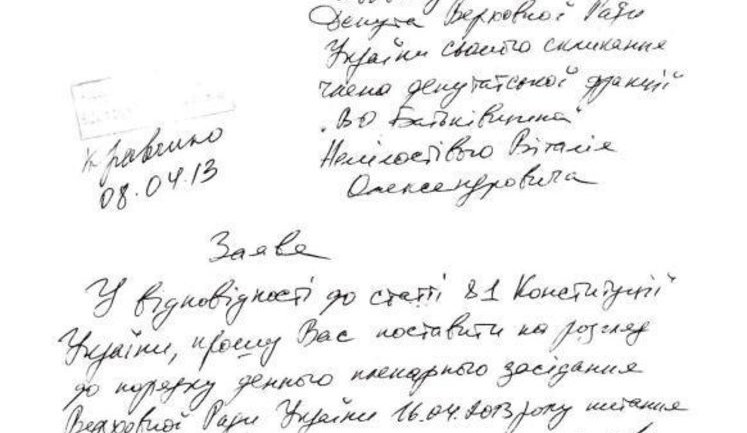 Депута Верховної Ради
України сьомого скликання
члена депутатської фракції
"ВО Батьківщина"
Немілостівого Віталія
Олександровича
Кравченко
08.04.13
Заява
У відповідності до статті 81 Конституції
України, прошу Вас поставити на розгляд
до порядку денного пленарного засідання
Верховної Ради України 16.04.2013 року питання